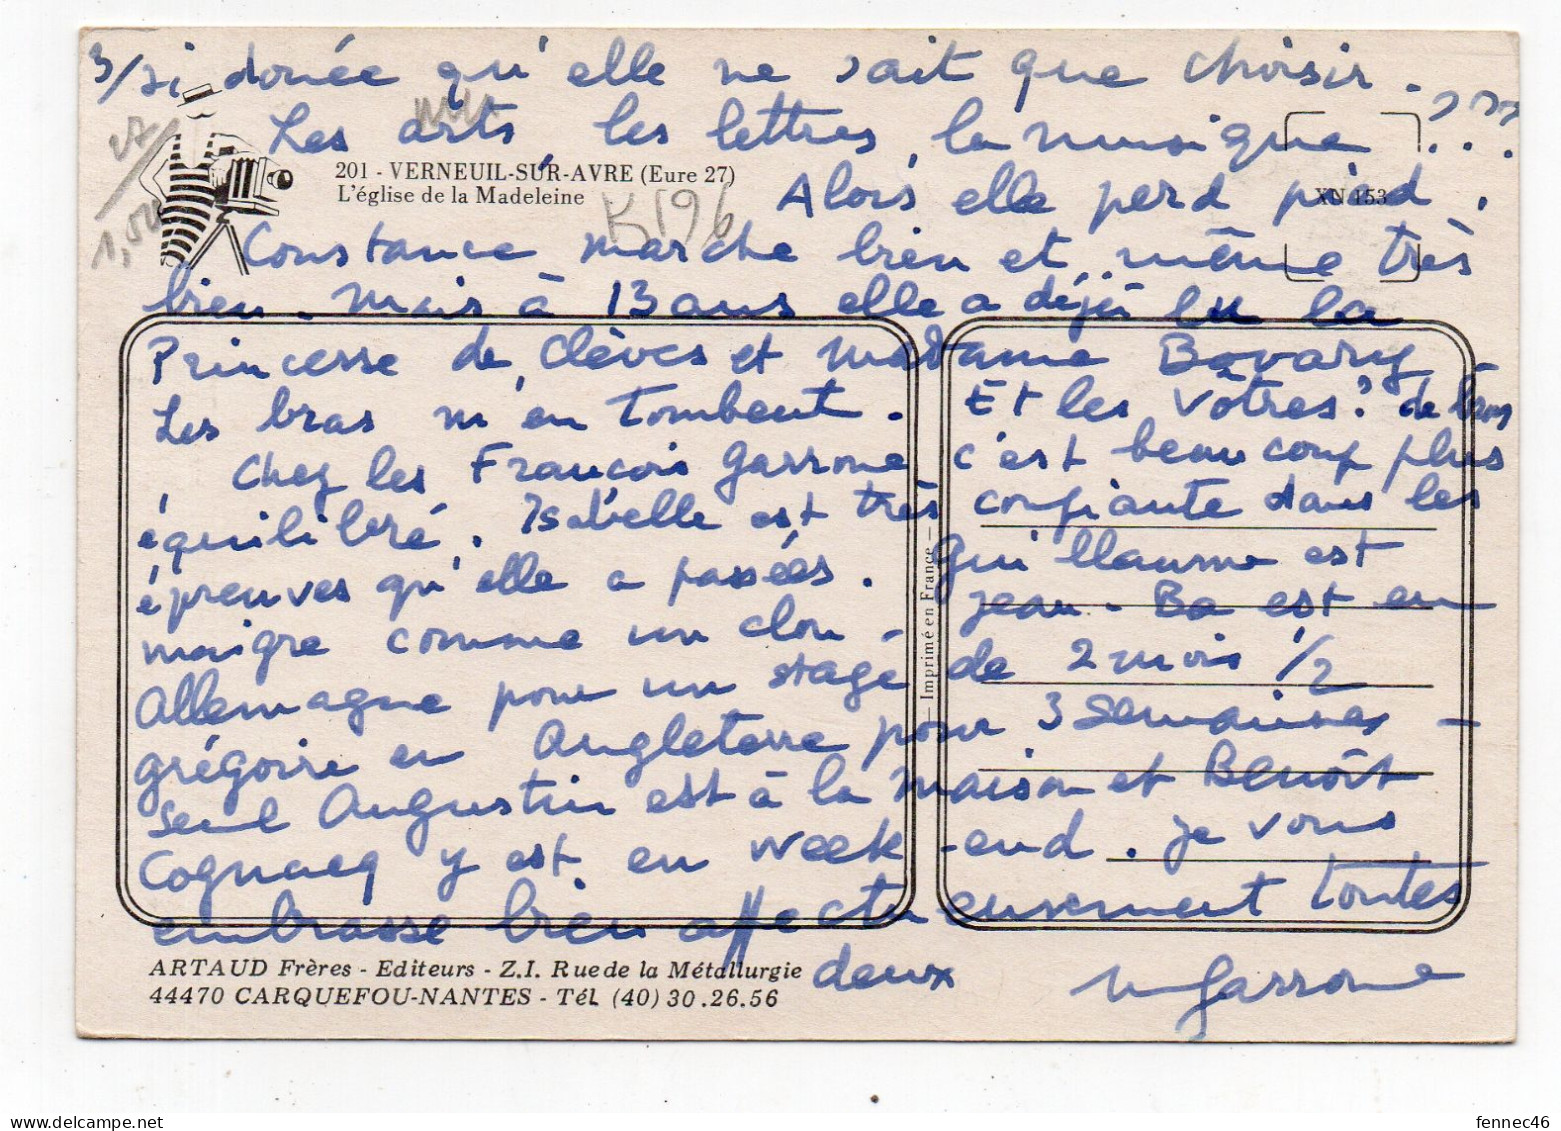 3/ si douée qu'elle ne sait que choisir.
Les arts, les lettres, la musique ???
27
1,50
201 - VERNEUIL-SUR-AVRE (Eure 27)
L'église de la Madeleine
K196
XN 153
Alors elle perd pied.
Constance marche bien et même très
bien. Mais à 13 ans elle a déjà lu la
Princesse de Clèves et Madame Bovary
Les bras m'en tombent. Et les vôtres?
Chez les François Garrone, c'est beaucoup plus
équilibré. Isabelle est très confiante dans les
épreuves qu'elle a passées. Guillaume est
maigre comme un clou - Jean-Ba est en
Allemagne pour un stage de 2 mois 1/2
grégoire en Angleterre pour 3 semaines -
Seul Augustin est à la maison et Benoît
Cognacq y est en week-end. Je vous
embrasse bien affectueusement toutes
deux
Garrone
Imprimé en France
ARTAUD Frères - Editeurs - Z.I. Rue de la Métallurgie
44470 CARQUEFOU-NANTES - Tél. (40) 30.26.56
fennec46